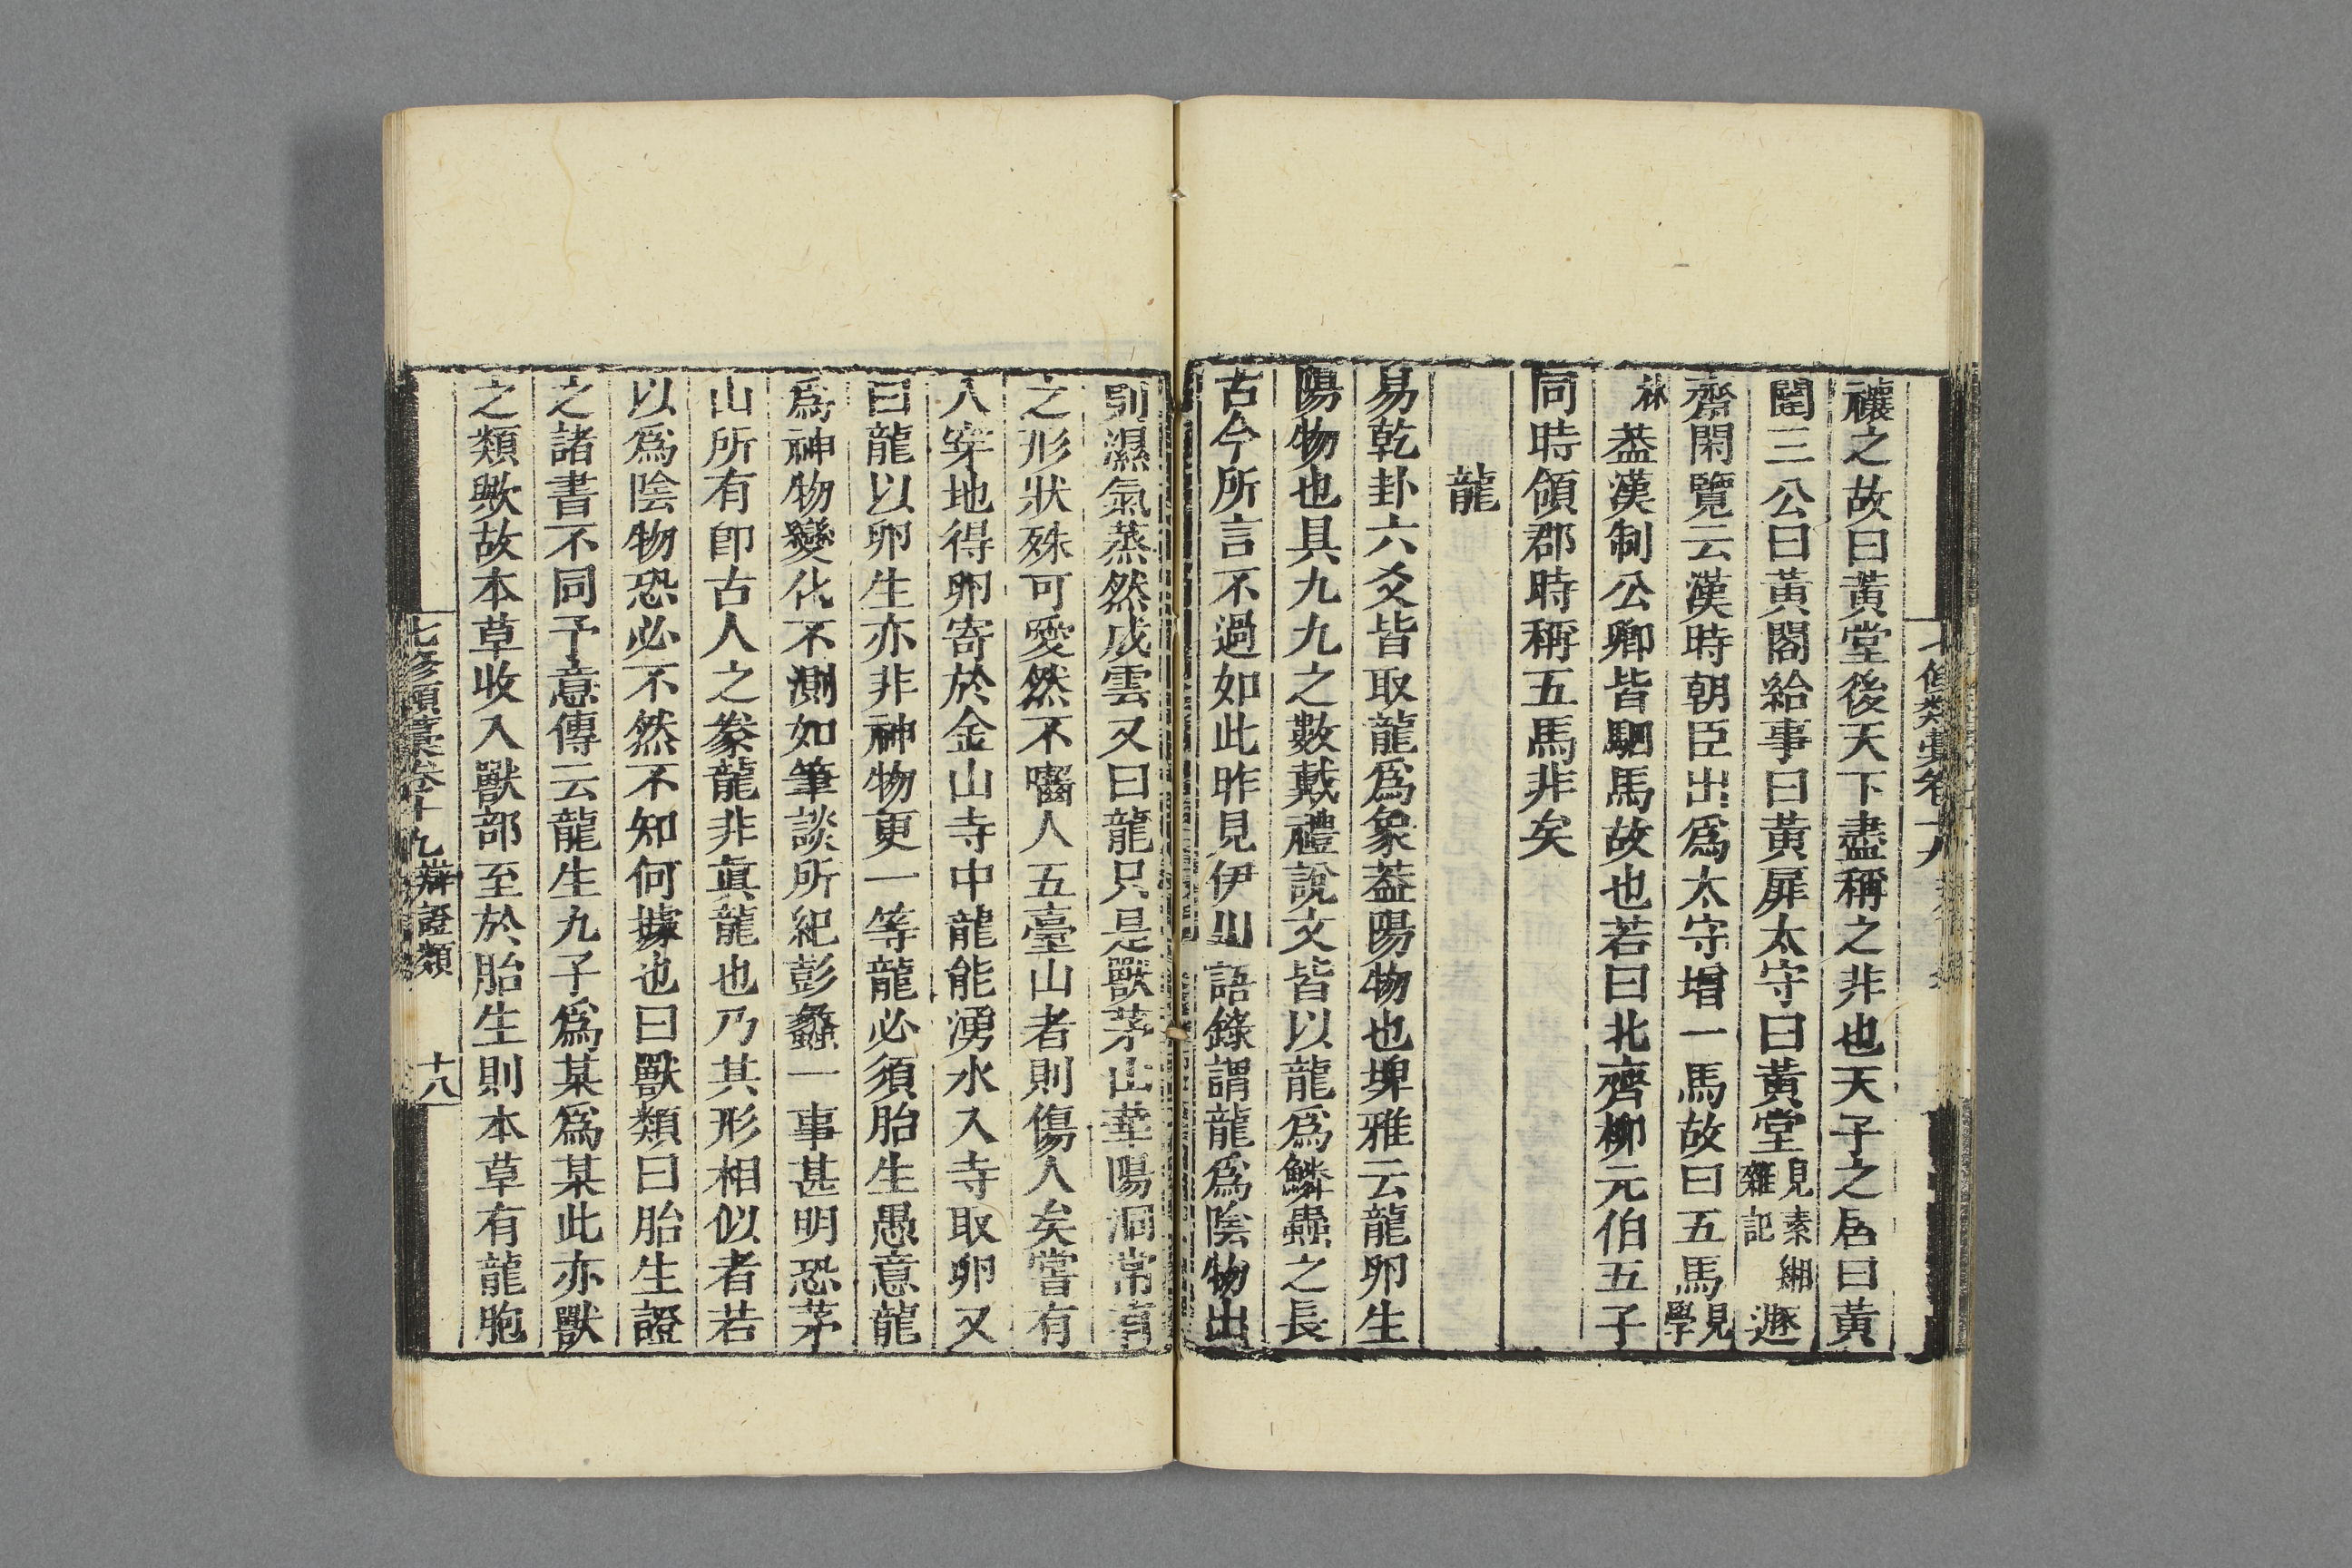 禳之故曰黃堂後天下盡稱之非也天子之居曰黃
閣三公曰黃閣給事曰黃扉太守曰黃堂見素緗雜記遯
齋閑覽云漢時朝臣出爲太守增一馬故曰五馬見學
林葢漢制公卿皆駟馬故也若曰北齊柳元伯五子
同時領郡時稱五馬非矣
龍
易乾卦六爻皆取龍爲象葢陽物也埤雅云龍卵生
陽物也具九九之數戴禮說文皆以龍爲鱗蟲之長
古今所言不過如此昨見伊川語錄謂龍爲陰物出
則濕氣蒸然成雲又曰龍只是獸茅山華陽洞常有
之形狀殊可愛然不嚙人五臺山者則傷人矣嘗有
人穿地得卵寄於金山寺中龍能湧水入寺取卵又
曰龍以卵生亦非神物更一等龍必須胎生愚意龍
爲神物變化不測如筆談所紀彭蠡一事甚明恐茅
山所有卽古人之豢龍非眞龍也乃其形相似者若
以爲陰物恐必不然不知何據也曰獸類曰胎生證
之諸書不同予意傳云龍生九子爲某爲某此亦獸
之類歟故本草收入獸部至於胎生則本草有龍胞
七修類藁卷十九 辯證類 十八